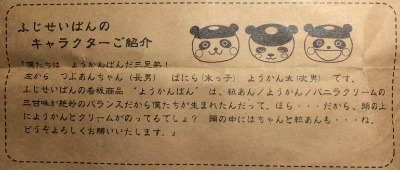 ふじせいぱんの
キャラクターご紹介
『僕たちは ようかんぱんだ三兄弟!
左から つぶあんちゃん(長男) ばにら(末っ子) ようかん太(次男) です。
ふじせいぱんの看板商品 “ようかんぱん” は、粒あん/ようかん/バニラクリームの
三甘味が絶妙のバランスだから僕たちが生まれたんだって。ほら・・・だから、頭の上
にようかんとクリームがのってるでしょ? 頭の中にはちゃんと粒あんも・・・ね。
どうぞよろしくお願いいたします。』